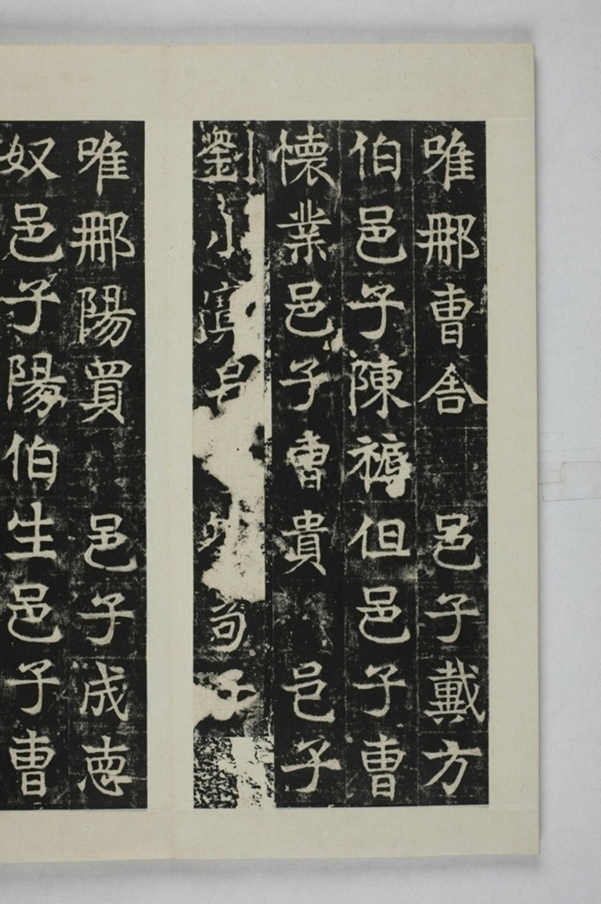 唯那曹舍 邑子戴方
伯邑子陳 但邑子曹
懷業邑子曹貴 邑子
劉
唯那陽買 邑子成惠
奴邑子陽伯生邑子曹